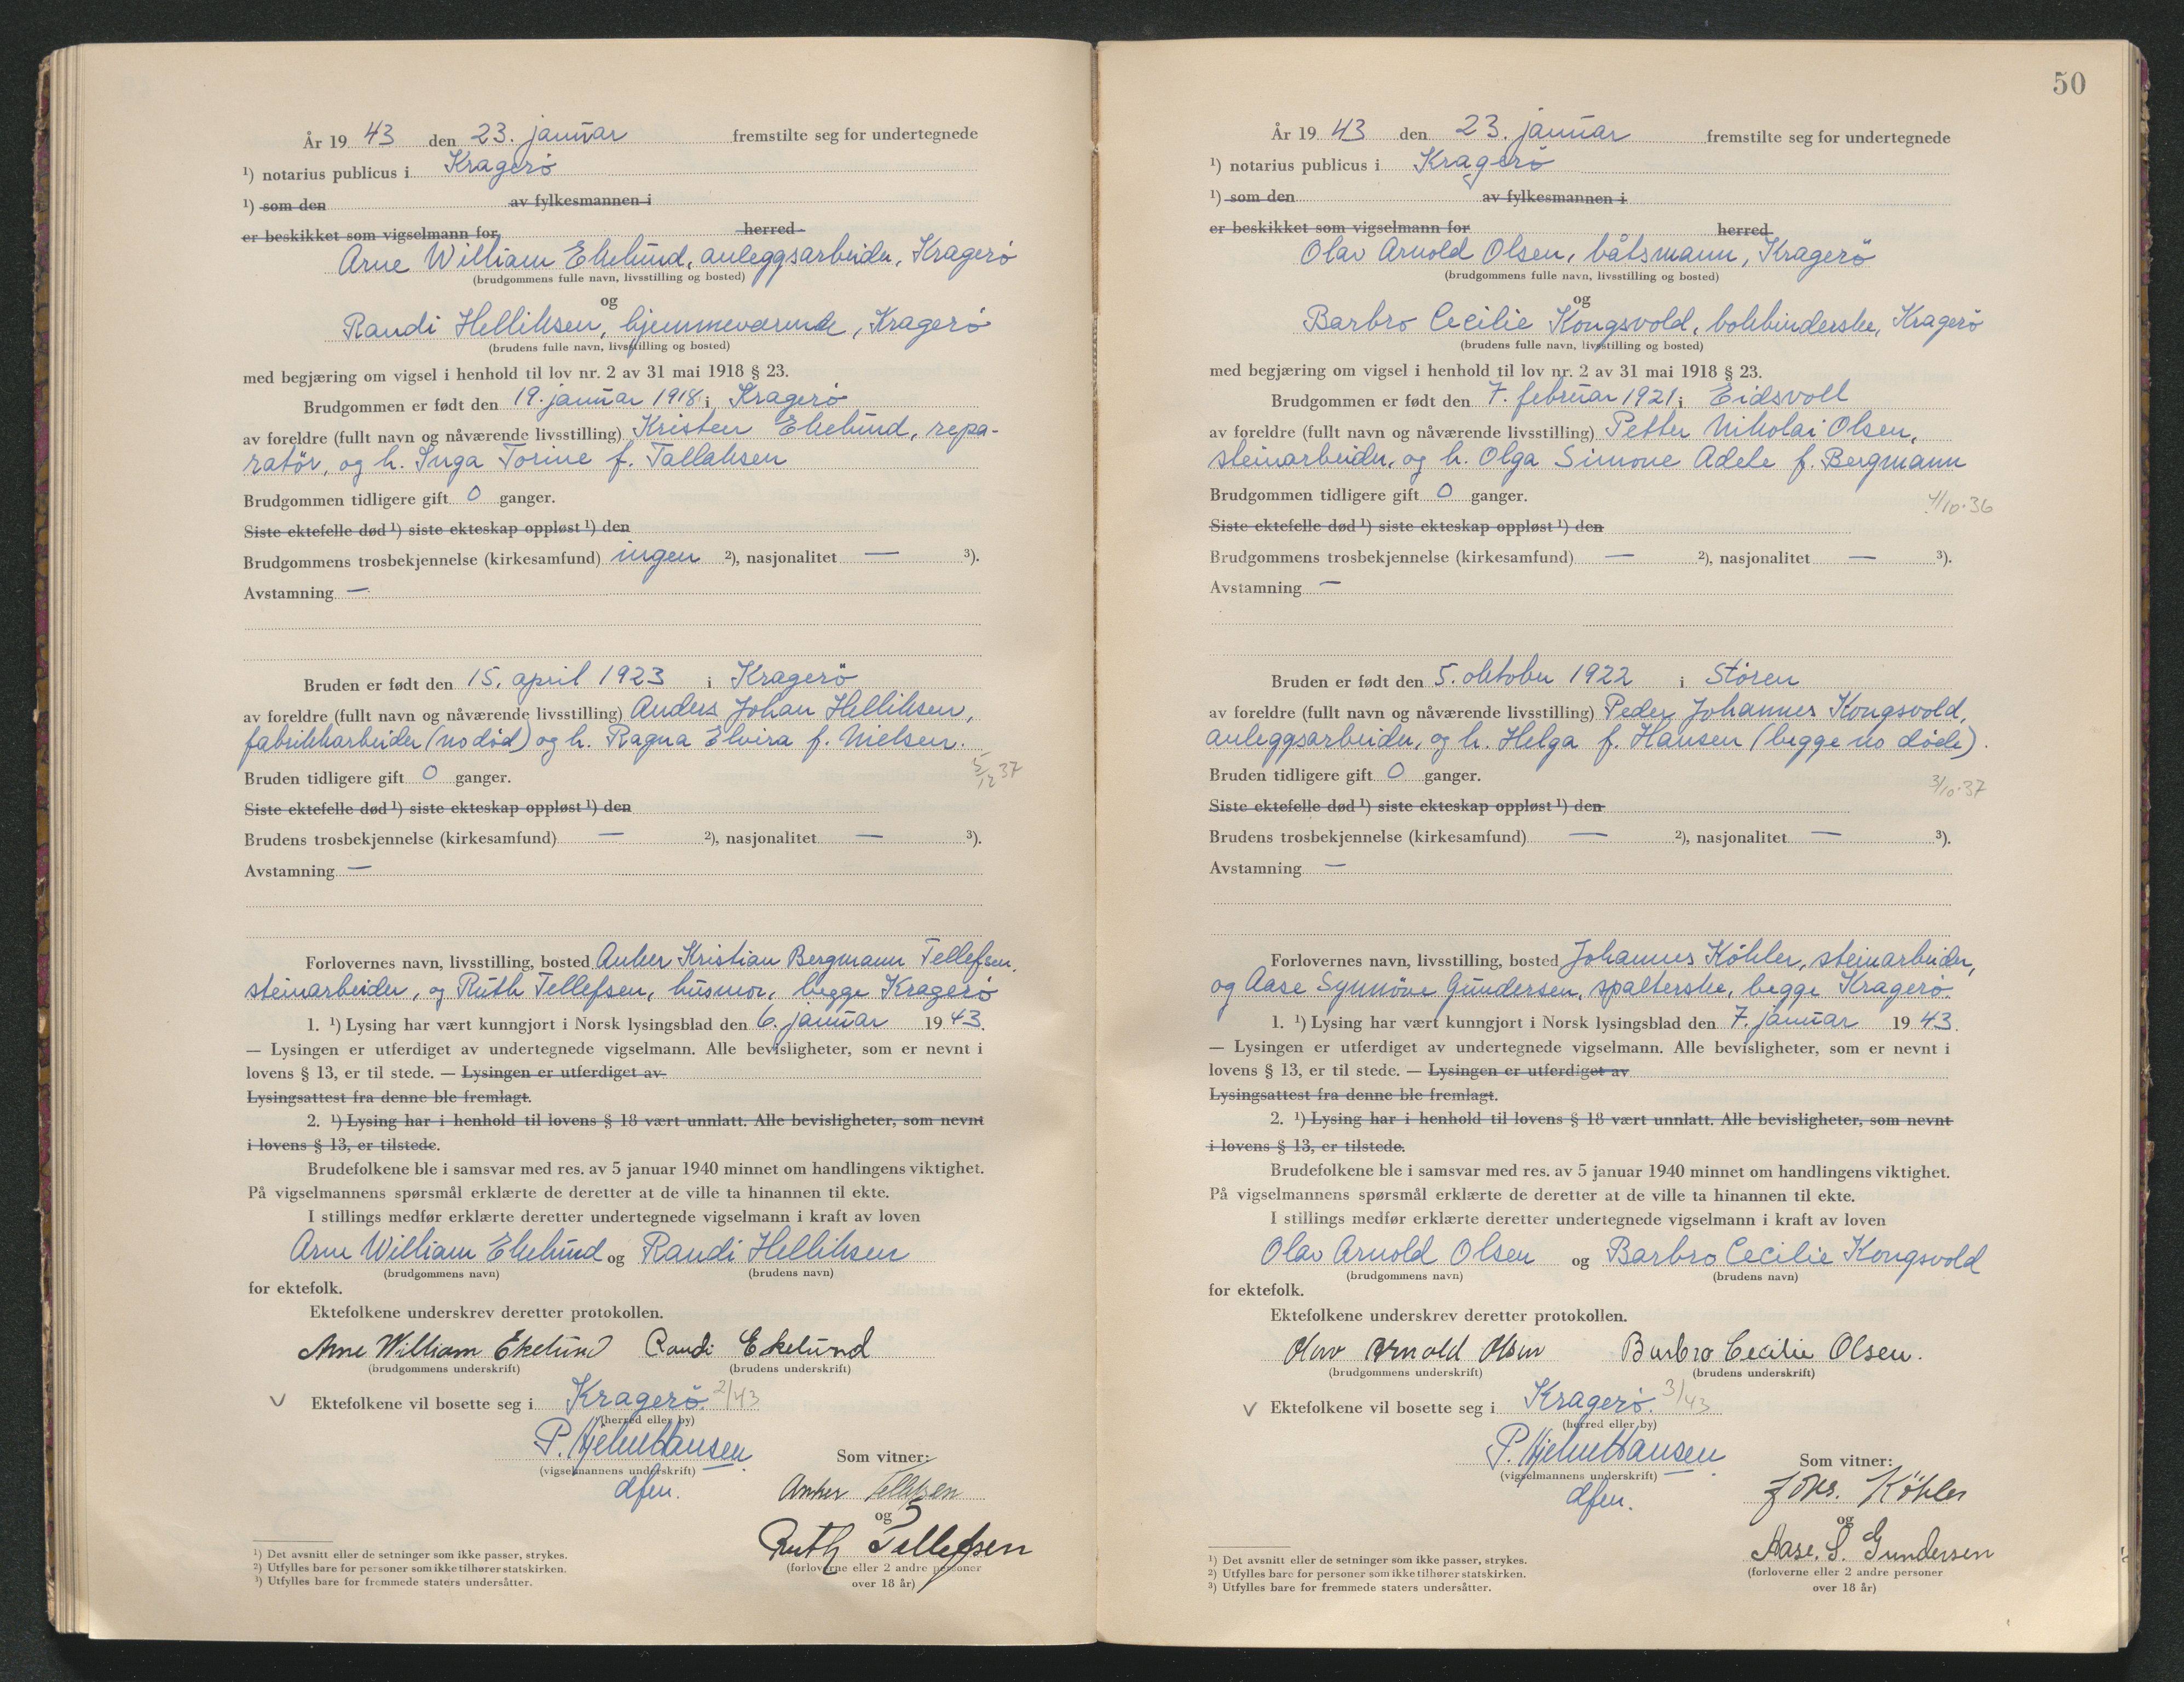 År 19 43 den 23. januar fremstilte seg for undertegnede
¹) notarius publicus i Kragerø
¹) som den av fylkesmannen i
er beskikket som vigselmann for herred
Arne William Ekelund, anleggsarbeider, Kragerø
(brudgommens fulle navn, livsstilling og bosted)
og
Randi Helliksen, hjemmeværende, Kragerø
(brudens fulle navn, livsstilling og bosted)
med begjæring om vigsel i henhold til lov nr. 2 av 31 mai 1918 § 23.
Brudgommen er født den 19. januar 1918 i Kragerø
av foreldre (fullt navn og nåværende livsstilling) Kristen Ekelund, repa-
ratör, og h. Inga Torine f. Tallaksen
Brudgommen tidligere gift 0 ganger.
Siste ektefelle død ¹) siste ekteskap oppløst ¹) den
Brudgommens trosbekjennelse (kirkesamfund) ingen ²), nasjonalitet — ³).
Avstamning —
Bruden er født den 15. april 1923 i Kragerø
av foreldre (fullt navn og nåværende livsstilling) Anders Johan Helliksen,
fabrikkarbeider (no död) og h. Ragna Elvira f. Nielsen.
5/12 37
Bruden tidligere gift 0 ganger.
Siste ektefelle død ¹) siste ekteskap oppløst ¹) den
Brudens trosbekjennelse (kirkesamfund) — ²), nasjonalitet — ³).
Avstamning —
Forlovernes navn, livsstilling, bosted Anker Kristian Bergmann Tellefsen,
steinarbeider, og Ruth Tellefsen, husmor, begge Kragerø
1. ¹) Lysing har vært kunngjort i Norsk lysingsblad den 6. januar 19 43.
— Lysingen er utferdiget av undertegnede vigselmann. Alle bevisligheter, som er nevnt i
lovens § 13, er til stede. — Lysingen er utferdiget av
Lysingsattest fra denne ble fremlagt.
2. ¹) Lysing har i henhold til lovens § 18 vært unnlatt. Alle bevisligheter, som nevnt
i lovens § 13, er tilstede.
Brudefolkene ble i samsvar med res. av 5 januar 1940 minnet om handlingens viktighet.
På vigselmannens spørsmål erklærte de deretter at de ville ta hinannen til ekte.
I stillings medfør erklærte deretter undertegnede vigselmann i kraft av loven
Arne William Ekelund og Randi Helliksen
(brudgommens navn) (brudens navn)
for ektefolk.
Ektefolkene underskrev deretter protokollen.
Arne William Ekelund Randi Ekelund
(brudgommens underskrift) (brudens underskrift)
V Ektefolkene vil bosette seg i Kragerø. 2/43
(herred eller by)
P. Hjelm Hansen
(vigselmannens underskrift)
dfm.
Som vitner:
Anker Tellefsen
og
Ruth Tellefsen
(forloverne eller 2 andre personer
over 18 år)
¹) Det avsnitt eller de setninger som ikke passer, strykes.
²) Utfylles bare for personer som ikke tilhører statskirken.
³) Utfylles bare for fremmede staters undersåtter.
50
År 19 43 den 23. januar fremstilte seg for undertegnede
¹) notarius publicus i Kragerø
¹) som den av fylkesmannen i
er beskikket som vigselmann for herred
Olav Arnold Olsen, båtsmann, Kragerø
(brudgommens fulle navn, livsstilling og bosted)
og
Barbro Cecilie Kongsvold, bokbinderske, Kragerø
(brudens fulle navn, livsstilling og bosted)
med begjæring om vigsel i henhold til lov nr. 2 av 31 mai 1918 § 23.
Brudgommen er født den 7. februar 1921 i Eidsvoll
av foreldre (fullt navn og nåværende livsstilling) Petter Nikolai Olsen,
steinarbeider, og h. Olga Simone Adele f. Bergmann
Brudgommen tidligere gift 0 ganger.
4/10.36
Siste ektefelle død ¹) siste ekteskap oppløst ¹) den
Brudgommens trosbekjennelse (kirkesamfund) — ²), nasjonalitet — ³).
Avstamning —
Bruden er født den 5. oktober 1922 i Stören
av foreldre (fullt navn og nåværende livsstilling) Peder Johannes Kongsvold,
anleggsarbeider, og h. Helga f. Hansen (begge no döde).
Bruden tidligere gift 0 ganger.
3/10.37
Siste ektefelle død ¹) siste ekteskap oppløst ¹) den
Brudens trosbekjennelse (kirkesamfund) — ²), nasjonalitet — ³).
Avstamning —
Forlovernes navn, livsstilling, bosted Johannes Köhler, steinarbeider,
og Aase Synnöve Gundersen, spalterske, begge Kragerø.
1. ¹) Lysing har vært kunngjort i Norsk lysingsblad den 7. januar 19 43.
— Lysingen er utferdiget av undertegnede vigselmann. Alle bevisligheter, som er nevnt i
lovens § 13, er til stede. — Lysingen er utferdiget av
Lysingsattest fra denne ble fremlagt.
2. ¹) Lysing har i henhold til lovens § 18 vært unnlatt. Alle bevisligheter, som nevnt
i lovens § 13, er tilstede.
Brudefolkene ble i samsvar med res. av 5 januar 1940 minnet om handlingens viktighet.
På vigselmannens spørsmål erklærte de deretter at de ville ta hinannen til ekte.
I stillings medfør erklærte deretter undertegnede vigselmann i kraft av loven
Olav Arnold Olsen og Barbro Cecilie Kongsvold
(brudgommens navn) (brudens navn)
for ektefolk.
Ektefolkene underskrev deretter protokollen.
Olav Arnold Olsen Barbro Cecilie Olsen.
(brudgommens underskrift) (brudens underskrift)
V Ektefolkene vil bosette seg i Kragerø. 3/43
(herred eller by)
P. Hjelm Hansen
(vigselmannens underskrift)
dfm.
Som vitner:
Johs. Köhler
og
Aase. S. Gundersen
(forloverne eller 2 andre personer
over 18 år)
¹) Det avsnitt eller de setninger som ikke passer, strykes.
²) Utfylles bare for personer som ikke tilhører statskirken.
³) Utfylles bare for fremmede staters undersåtter.